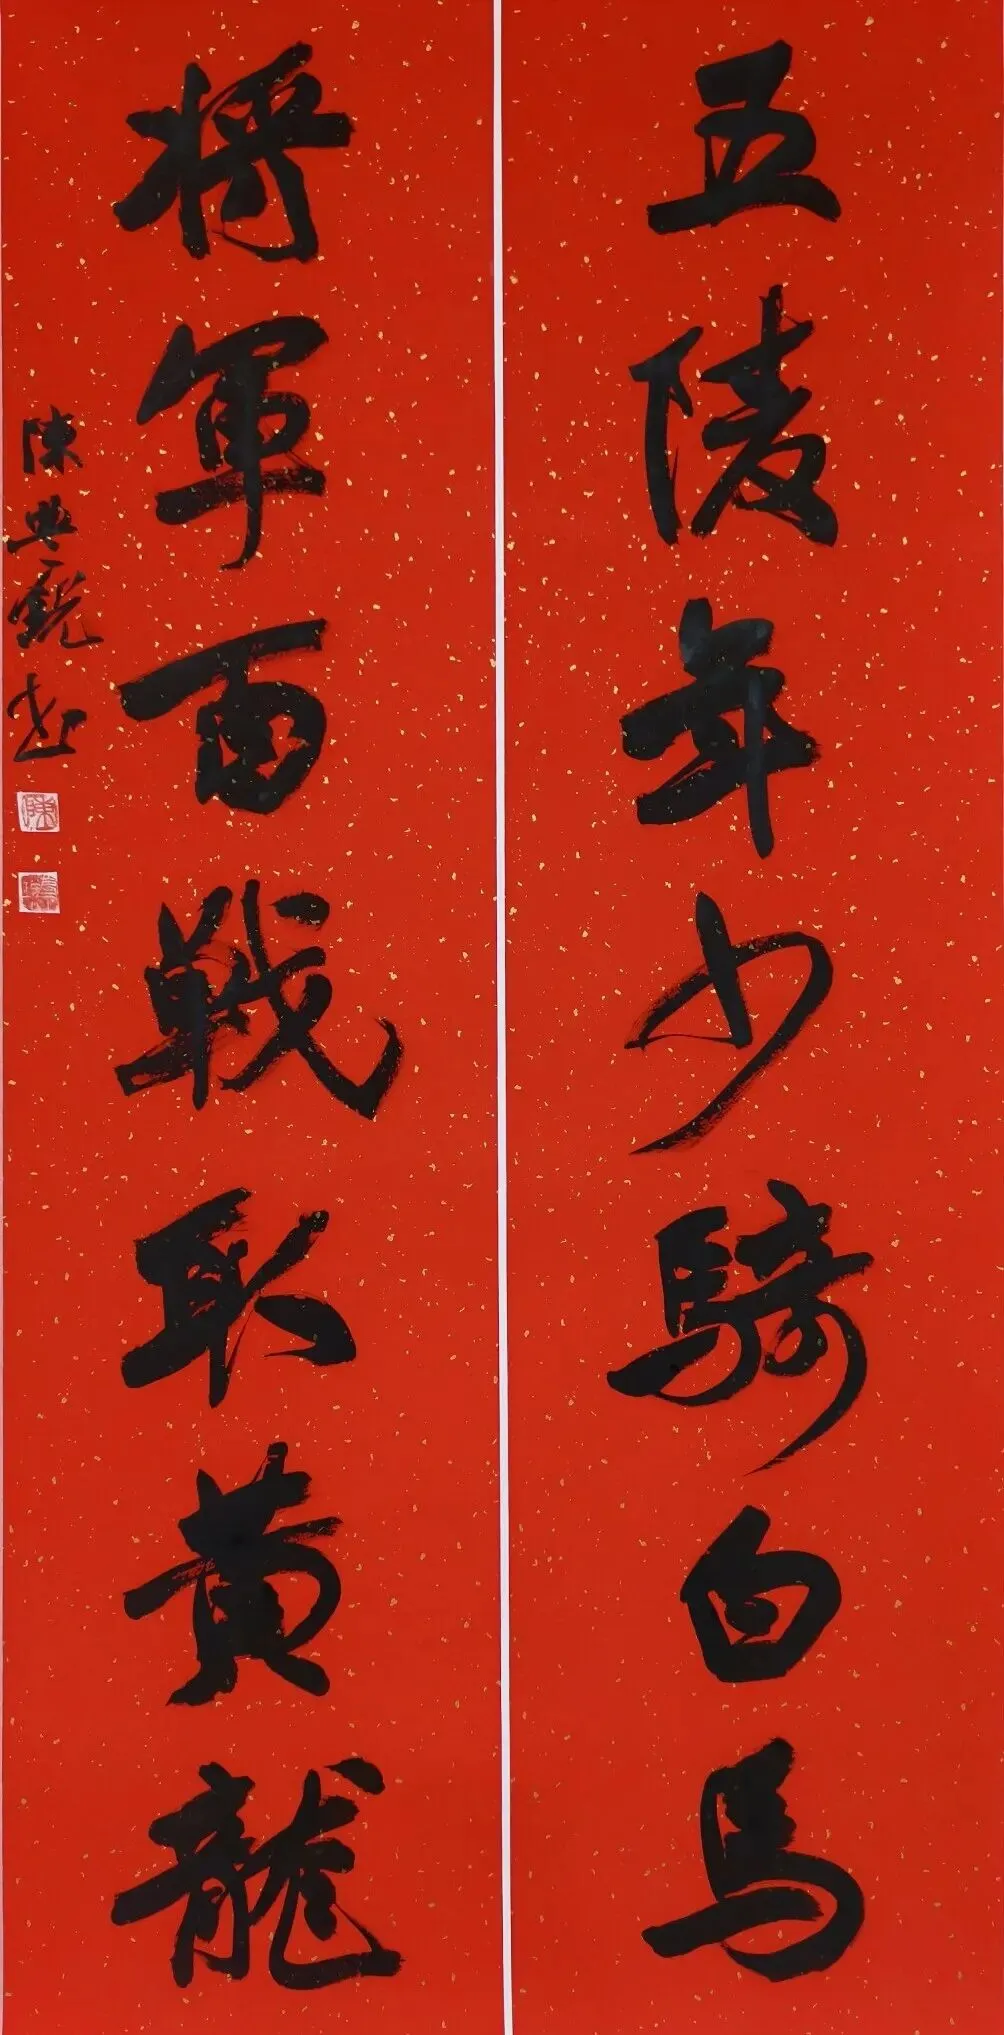 五陵年少騎白马
將軍百戰取黄龍
陳興銳書
陳